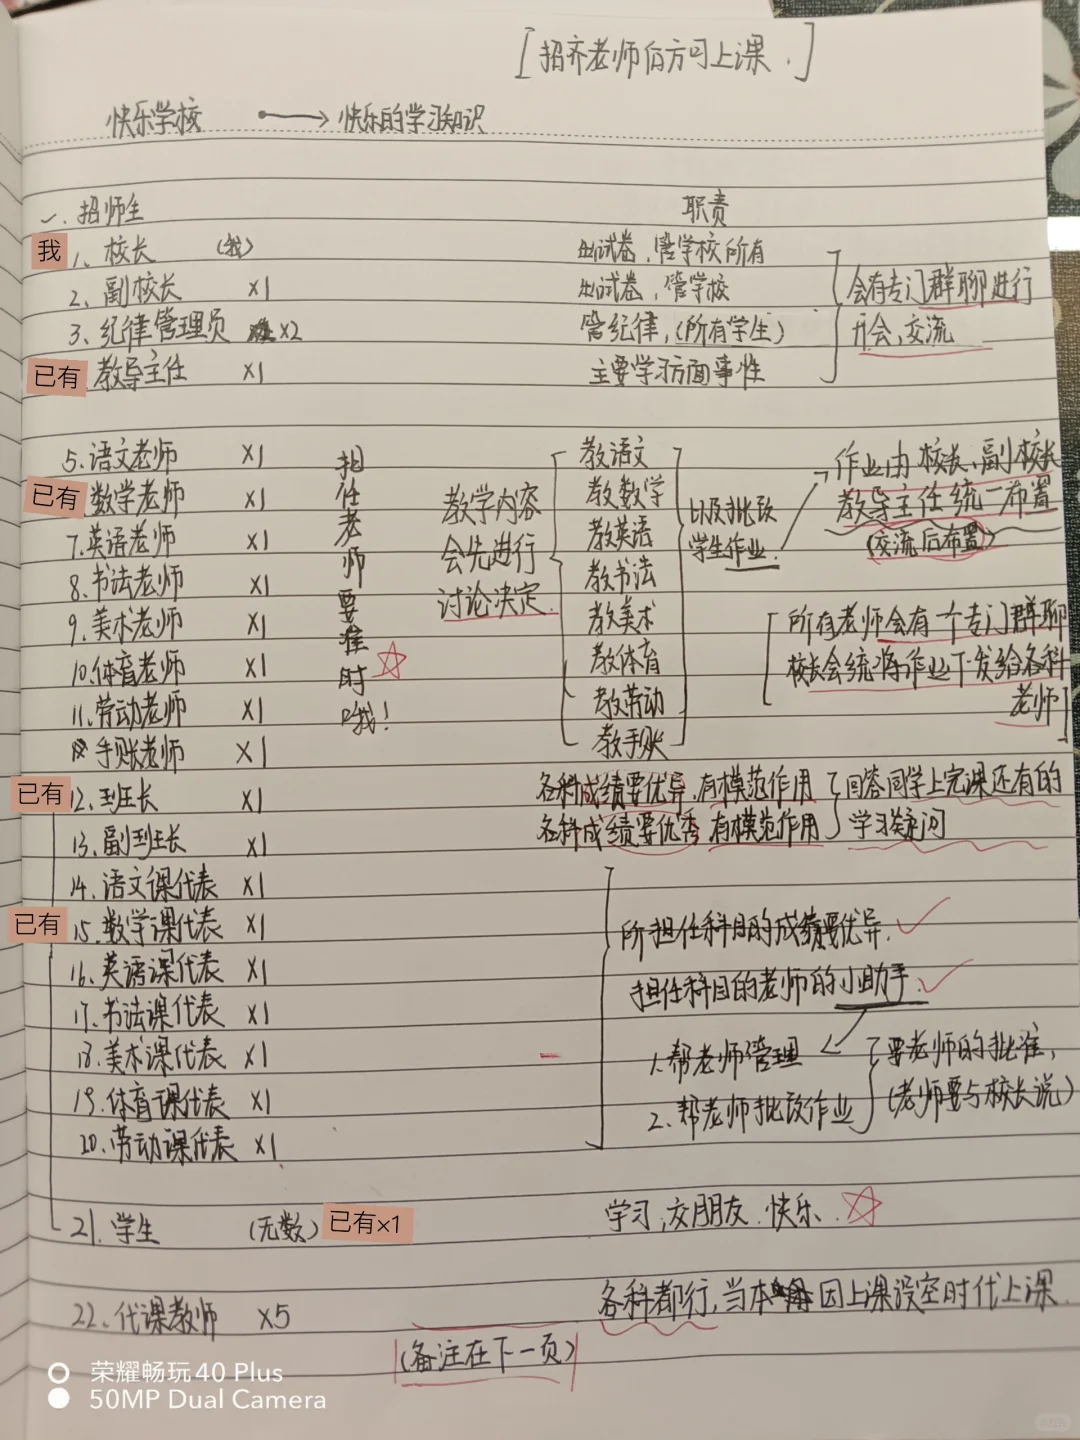 [招齐老师后方可上课.]
快乐学校 → 快乐的学习知识
一、招师生 职责
我 1、校长 (我) 出试卷,管学校所有
2、副校长 x1 出试卷,管学校
3、纪律管理员 x2 管纪律,(所有学生)
会有专门群聊进行
开会,交流
已有 教导主任 x1 主要学习方面事性
5.语文老师 x1 教语文
已有 数学老师 x1 教数学
7.英语老师 x1 教英语
8.书法老师 x1 教书法
9.美术老师 x1 教美术
10.体育老师 x1 教体育
11.劳动老师 x1 教劳动
手账老师 x1 教手账
担任老师要准时哦!
教学内容
会先进行
讨论决定.
以及批改
学生作业.
作业由校长、副校长
教导主任统一布置
(交流后布置)
[所有老师会有一个专门群聊
校长会统将作业下发给各科
老师]
已有 12.班长 x1 各科成绩要优异,有模范作用
13.副班长 x1 各科成绩要优秀,有模范作用
回答同学上完课还有的
学习疑问
14.语文课代表 x1
已有 15.数学课代表 x1
16.英语课代表 x1
17.书法课代表 x1
18.美术课代表 x1
19.体育课代表 x1
20.劳动课代表 x1
所担任科目的成绩要优异.
担任科目的老师的小助手.
1.帮老师管理
2.帮老师批改作业
要老师的批准,
(老师要与校长说)
21.学生 (无数) 已有×1 学习,交朋友.快乐.
22.代课教师 x5 各科都行,当本 因上课没空时代上课.
(备注在下一页)
荣耀畅玩40 Plus
50MP Dual Camera